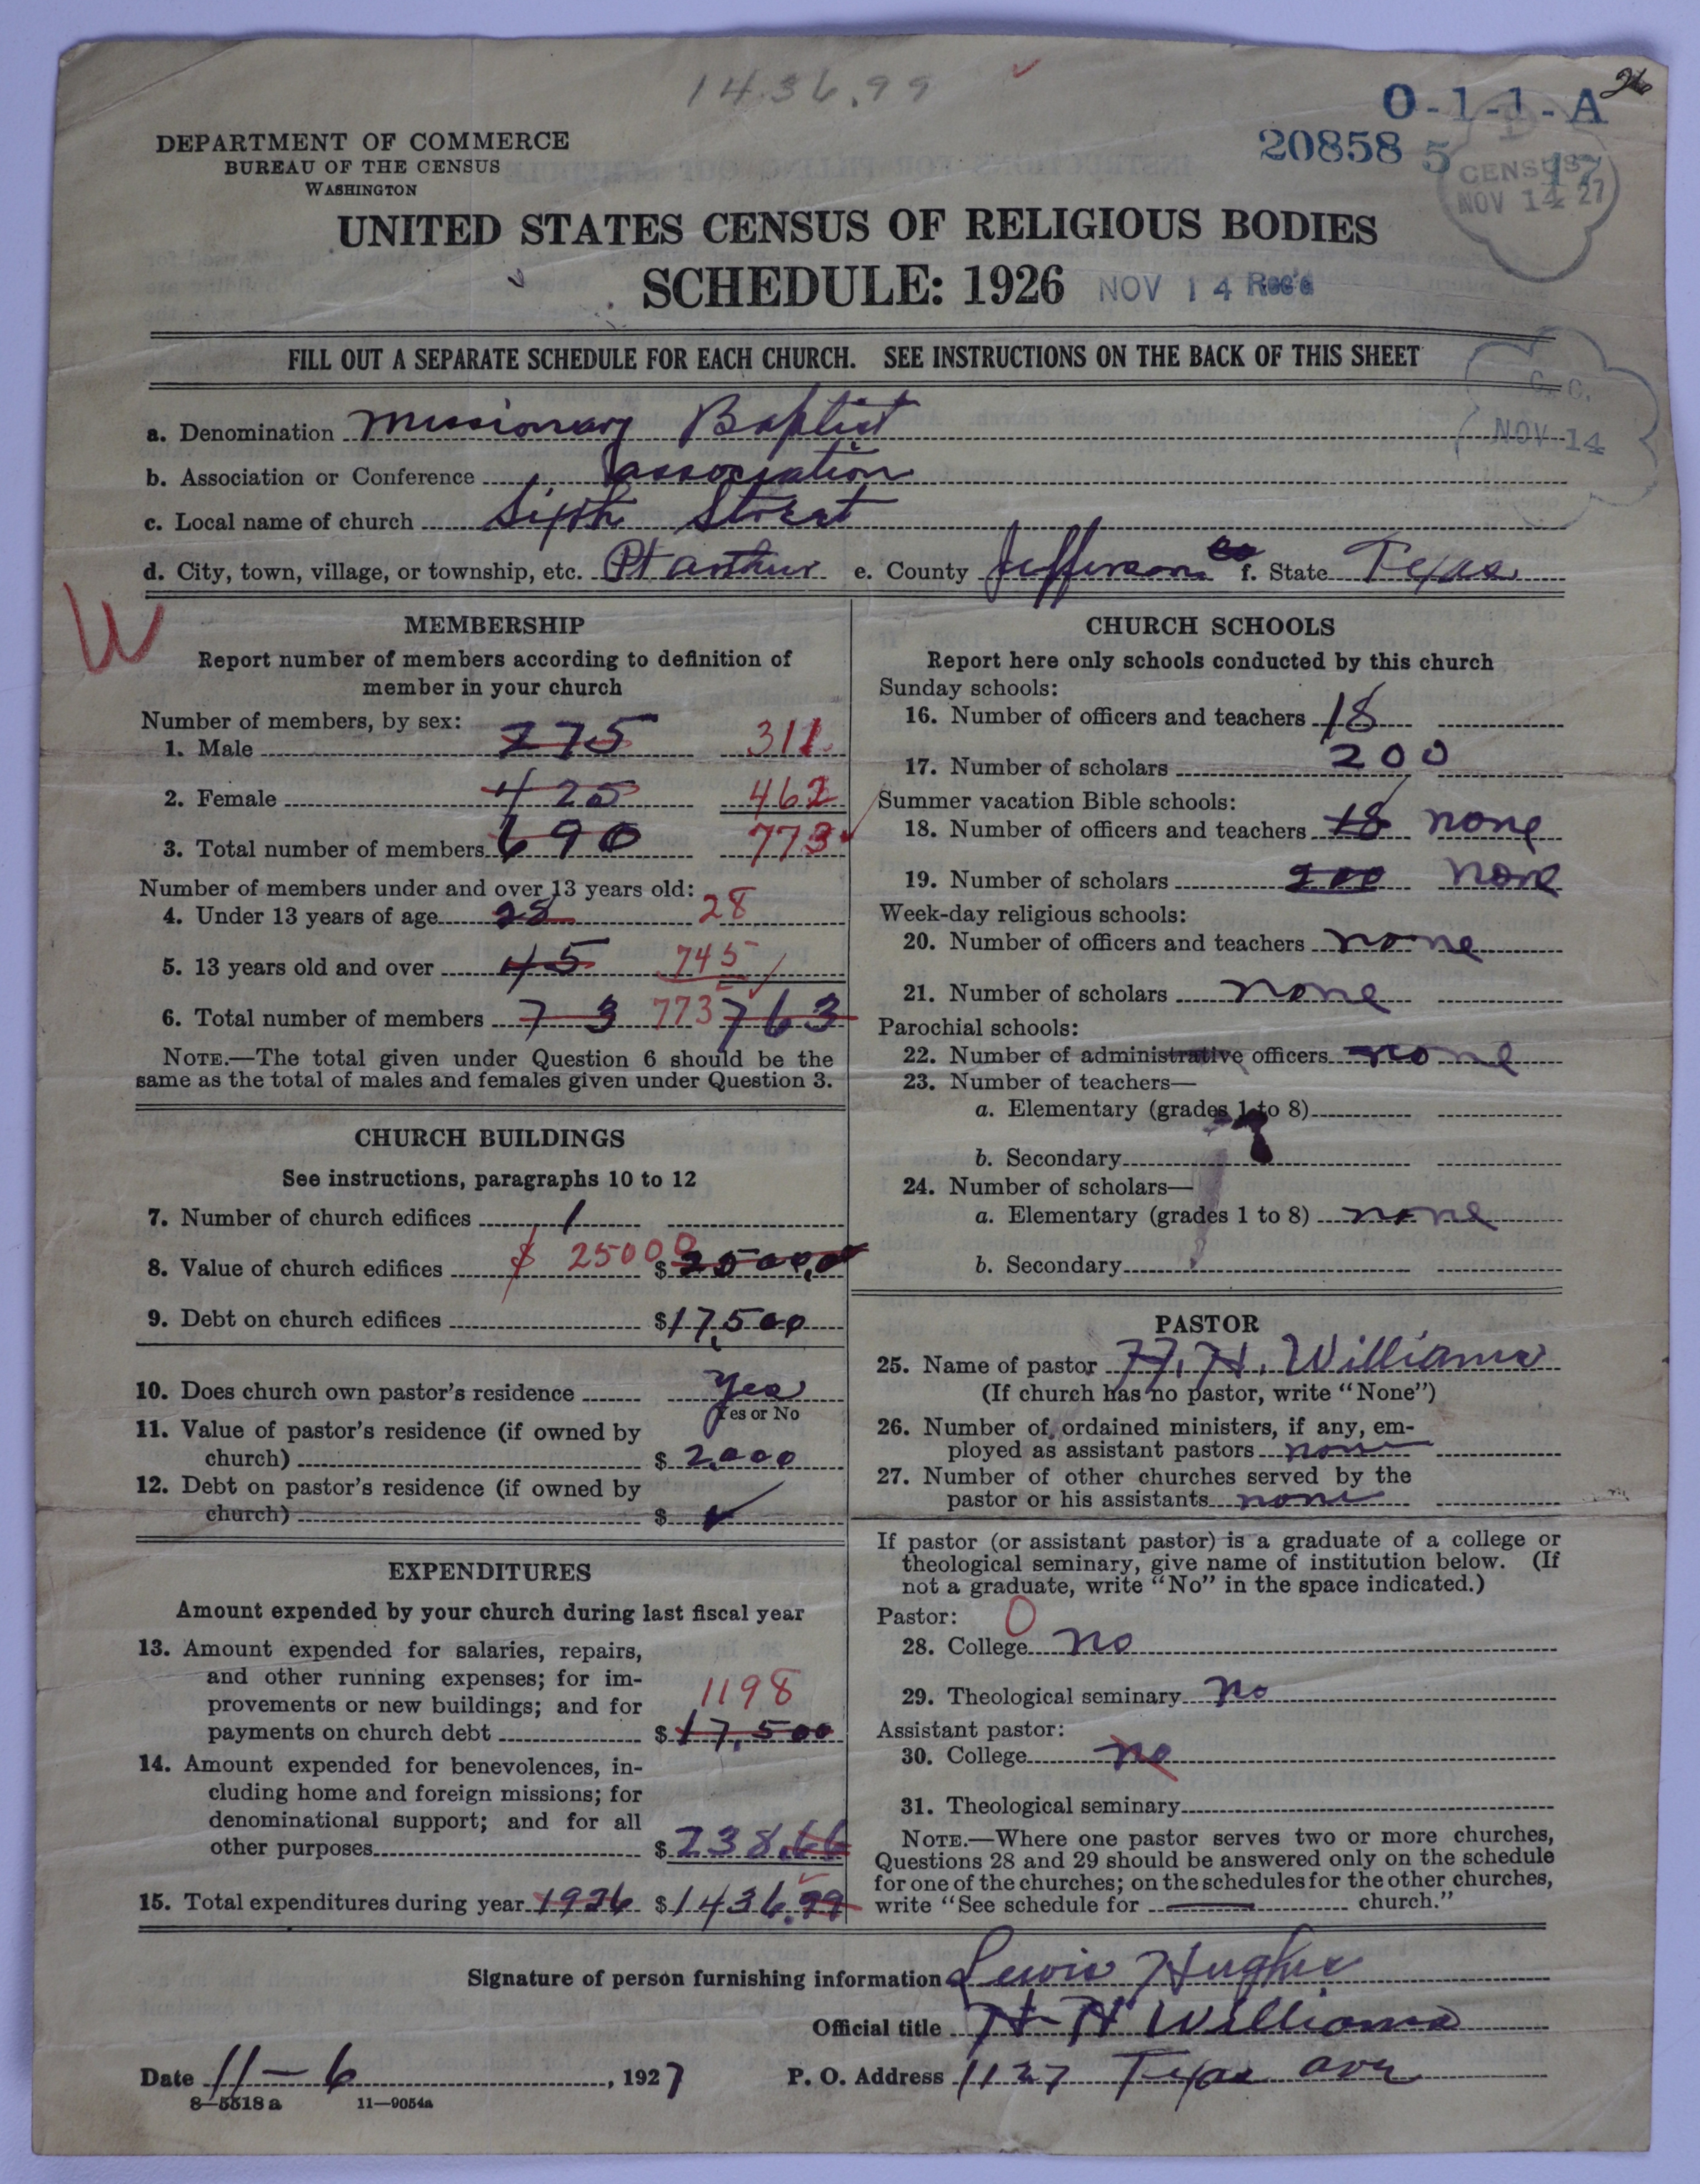 1436.99
O-1-1-A
20858 5 17
CENSUS
NOV 14 27
DEPARTMENT OF COMMERCE
BUREAU OF THE CENSUS
WASHINGTON
UNITED STATES CENSUS OF RELIGIOUS BODIES
SCHEDULE: 1926 NOV 14 Rec'd
FILL OUT A SEPARATE SCHEDULE FOR EACH CHURCH. SEE INSTRUCTIONS ON THE BACK OF THIS SHEET
C. C.
NOV 14
a. Denomination Missionary Baptist
b. Association or Conference association
c. Local name of church Sixth Street
d. City, town, village, or township, etc. Pt arthur e. County Jefferson Co f. State Texas
W
MEMBERSHIP
Report number of members according to definition of
member in your church
Number of members, by sex:
1. Male 275 311
2. Female 425 462
3. Total number of members 690 773
Number of members under and over 13 years old:
4. Under 13 years of age 28 28
5. 13 years old and over 45 745
6. Total number of members 73 773 763
NOTE.—The total given under Question 6 should be the
same as the total of males and females given under Question 3.
CHURCH BUILDINGS
See instructions, paragraphs 10 to 12
7. Number of church edifices 1
8. Value of church edifices $ 25000 $ 2500,0
9. Debt on church edifices $17,500
10. Does church own pastor's residence Yes
Yes or No
11. Value of pastor's residence (if owned by
church) $ 2,000
12. Debt on pastor's residence (if owned by
church) $ ✓
EXPENDITURES
Amount expended by your church during last fiscal year
13. Amount expended for salaries, repairs,
and other running expenses; for im-
provements or new buildings; and for 1198
payments on church debt $ 17,500
14. Amount expended for benevolences, in-
cluding home and foreign missions; for
denominational support; and for all
other purposes $ 238.66
15. Total expenditures during year 1926 $1436.99
CHURCH SCHOOLS
Report here only schools conducted by this church
Sunday schools:
16. Number of officers and teachers 18
17. Number of scholars 200
Summer vacation Bible schools:
18. Number of officers and teachers 18 none
19. Number of scholars 200 none
Week-day religious schools:
20. Number of officers and teachers none
21. Number of scholars none
Parochial schools:
22. Number of administrative officers none
23. Number of teachers—
a. Elementary (grades 1 to 8)
b. Secondary
24. Number of scholars—
a. Elementary (grades 1 to 8) none
b. Secondary
PASTOR
25. Name of pastor H. H. Williams
(If church has no pastor, write "None")
26. Number of ordained ministers, if any, em-
ployed as assistant pastors none
27. Number of other churches served by the
pastor or his assistants none
If pastor (or assistant pastor) is a graduate of a college or
theological seminary, give name of institution below. (If
not a graduate, write "No" in the space indicated.)
Pastor: O
28. College no
29. Theological seminary no
Assistant pastor:
30. College no
31. Theological seminary
NOTE.—Where one pastor serves two or more churches,
Questions 28 and 29 should be answered only on the schedule
for one of the churches; on the schedules for the other churches,
write "See schedule for church."
Signature of person furnishing information Lewis Hughes
Official title H H Williams
Date 11-6, 1927 P. O. Address 1127 Texas ave
8-5518 a 11-9054a